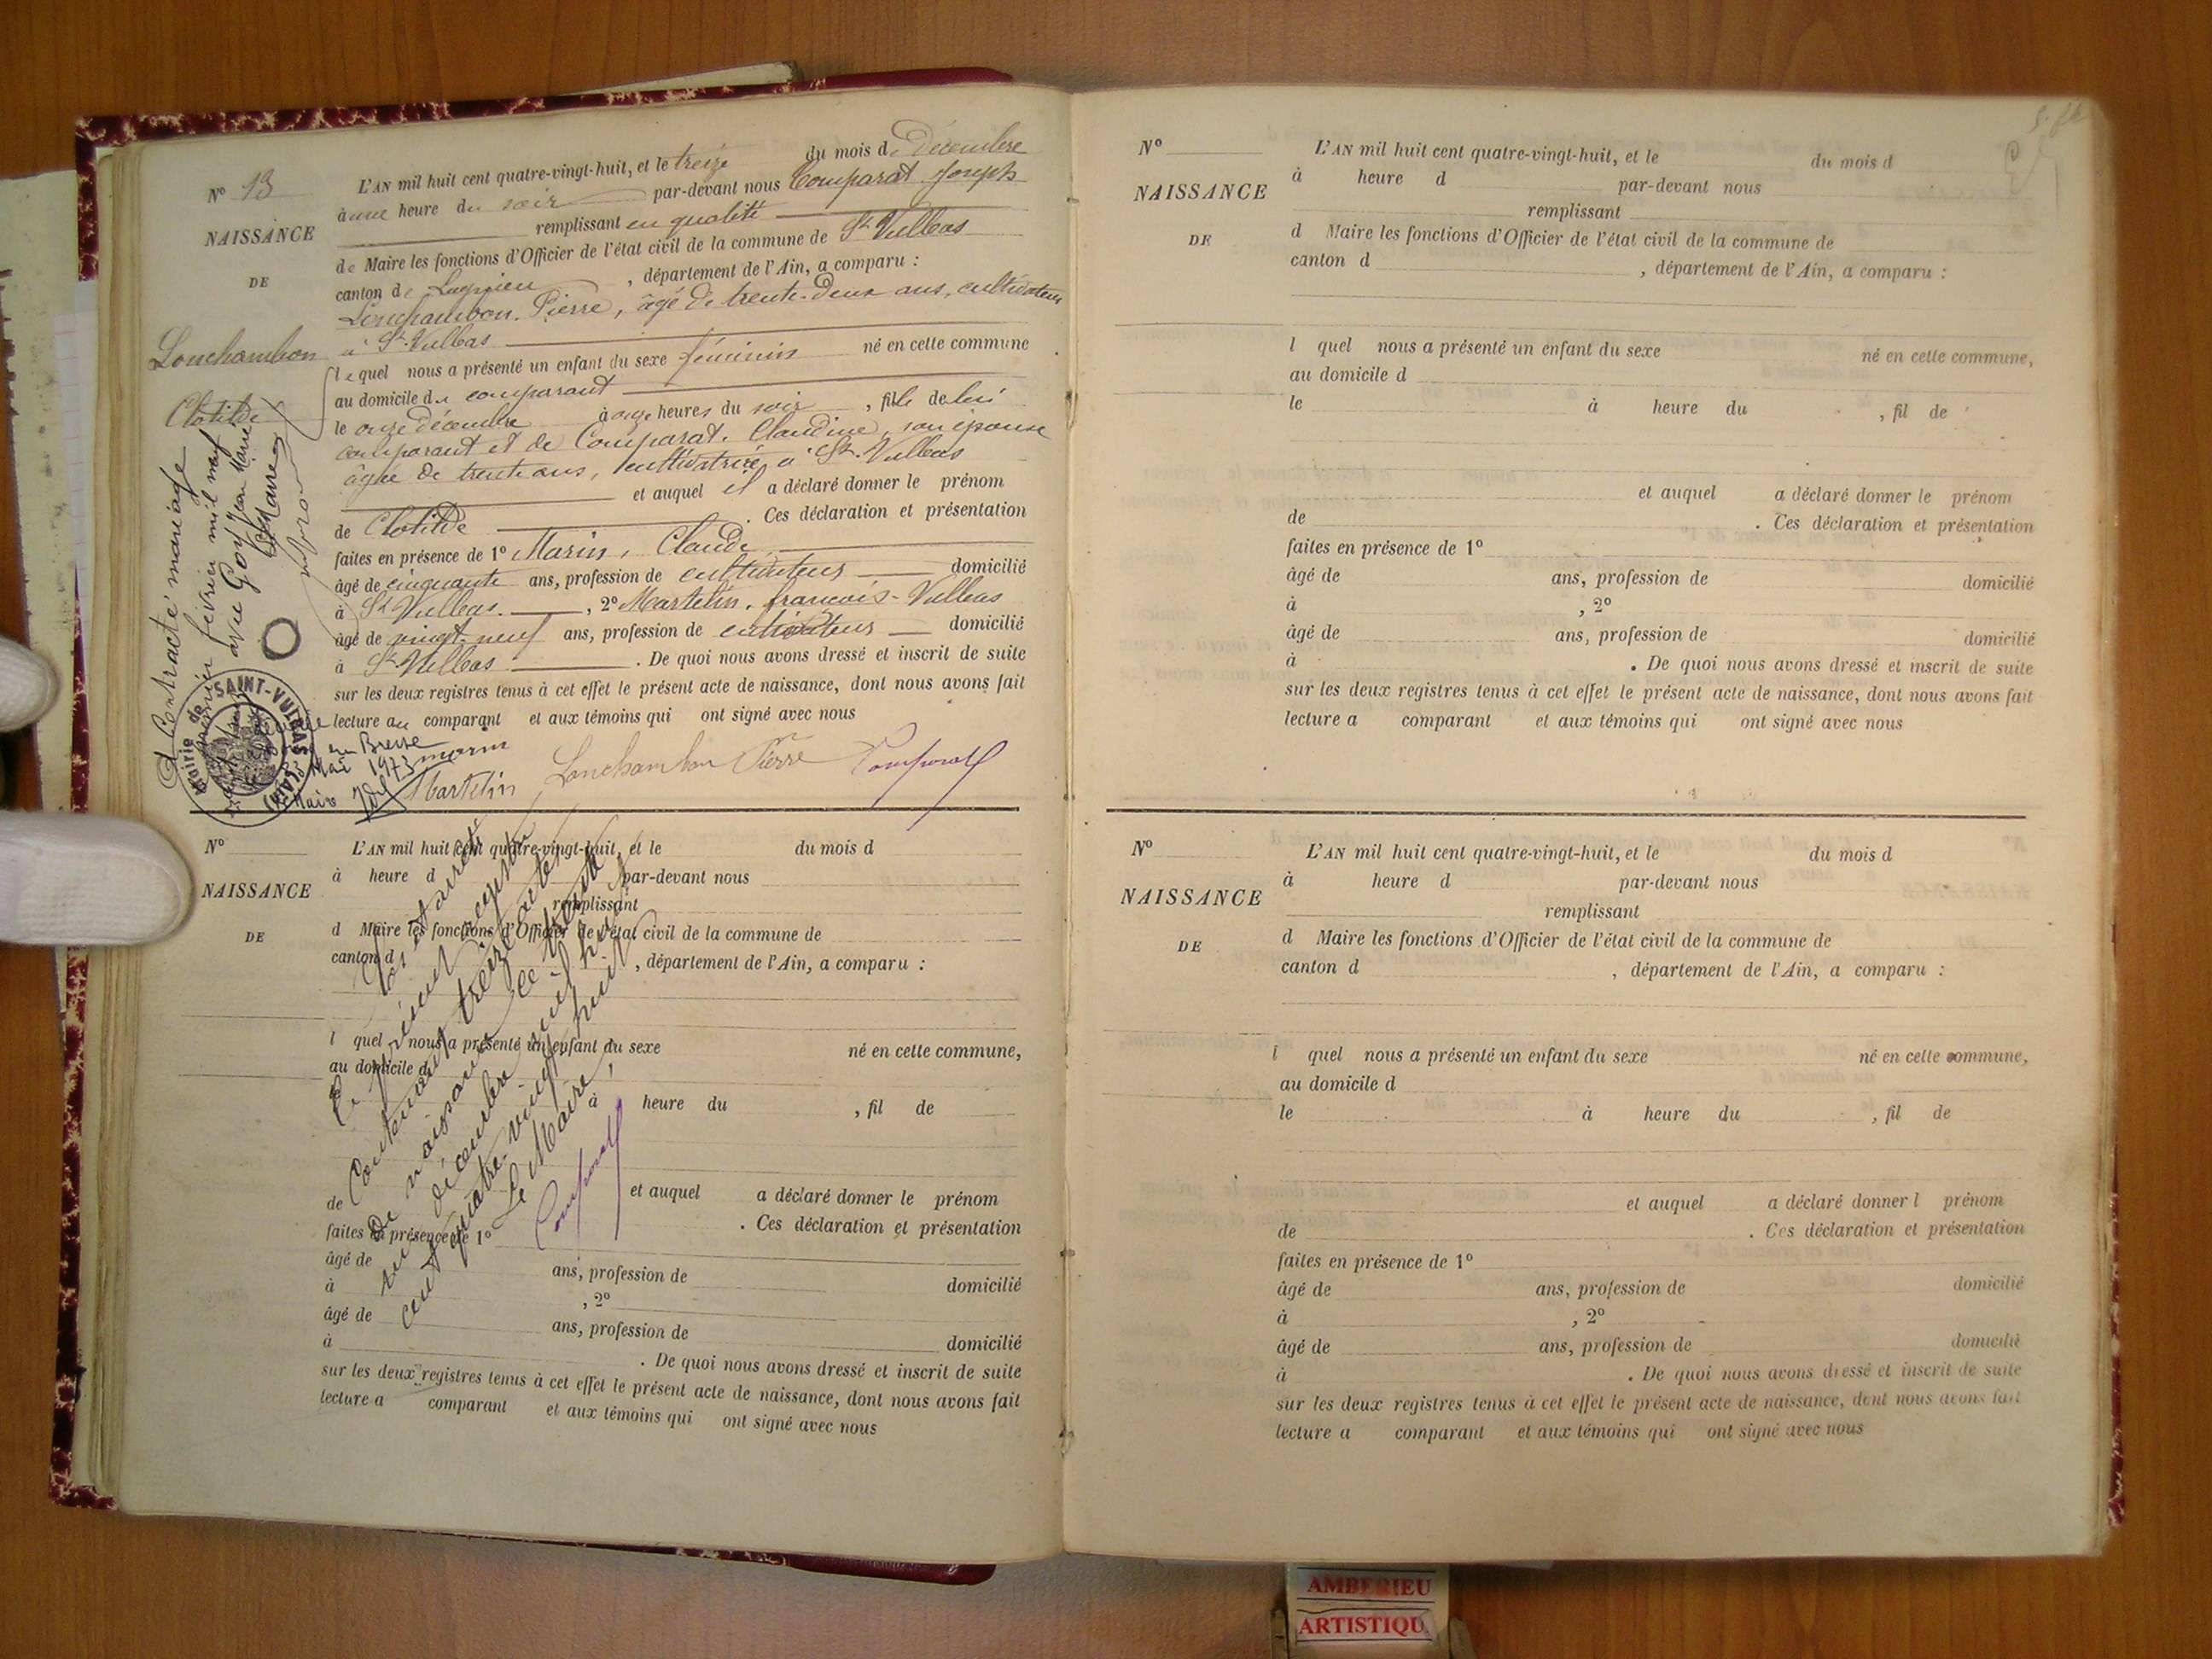 N° 13
NAISSANCE
DE
Lonchambon
Clotilde
L'AN mil huit cent quatre-vingt-huit, et le treize du mois de Décembre
à une heure du soir par-devant nous Comparat Joseph
remplissant en qualité
de Maire les fonctions d'Officier de l'état civil de la commune de St Vulbas
canton de Lagnieu, département de l'Ain, a comparu :
Lonchambon. Pierre, âgé de trente-deux ans, cultivateur
à St Vulbas
lequel nous a présenté un enfant du sexe féminin né en cette commune
au domicile du comparant
le onze décembre à onze heures du soir, fille de lui
comparant et de Comparat. Claudine, son épouse
âgée de trente ans, cultivatrice à St Vulbas
et auquel il a déclaré donner le prénom
de Clotilde. Ces déclaration et présentation
faites en présence de 1° Marin, Claude,
âgé de cinquante ans, profession de cultivateur domicilié
à St Vulbas., 2° Martelin. françois-Vulbas
âgé de vingt-neuf ans, profession de cultivateur domicilié
à St Vulbas. De quoi nous avons dressé et inscrit de suite
sur les deux registres tenus à cet effet le présent acte de naissance, dont nous avons fait
lecture au comparant et aux témoins qui ont signé avec nous
marin
Martelin Lonchambon Pierre Comparat
A Contracté mariage
février mil neuf
avec Goy Jean Marie
Le Maire
Mairie de SAINT-VULBAS (Ain)
en Bresse
Mai 1973
Le Maire
N°
NAISSANCE
DE
L'AN mil huit cent quatre-vingt-huit, et le du mois d
à heure d par-devant nous
remplissant
d Maire les fonctions d'Officier de l'état civil de la commune de
canton d , département de l'Ain, a comparu :
l quel nous a présenté un enfant du sexe né en cette commune,
au domicile d
le à heure du , fil de
et auquel a déclaré donner le prénom
de . Ces déclaration et présentation
faites en présence de 1°
âgé de ans, profession de domicilié
à , 2°
âgé de ans, profession de domicilié
à . De quoi nous avons dressé et inscrit de suite
sur les deux registres tenus à cet effet le présent acte de naissance, dont nous avons fait
lecture a comparant et aux témoins qui ont signé avec nous
le présent registre
Contenant treize actes
de naissance ce trente
un décembre mil huit
cent quatre-vingt huit
Le Maire,
Comparat
N°
NAISSANCE
DE
L'AN mil huit cent quatre-vingt-huit, et le du mois d
à heure d par-devant nous
remplissant
d Maire les fonctions d'Officier de l'état civil de la commune de
canton d , département de l'Ain, a comparu :
l quel nous a présenté un enfant du sexe né en cette commune,
au domicile d
le à heure du , fil de
et auquel a déclaré donner le prénom
de . Ces déclaration et présentation
faites en présence de 1°
âgé de ans, profession de domicilié
à , 2°
âgé de ans, profession de domicilié
à . De quoi nous avons dressé et inscrit de suite
sur les deux registres tenus à cet effet le présent acte de naissance, dont nous avons fait
lecture a comparant et aux témoins qui ont signé avec nous
N°
NAISSANCE
DE
L'AN mil huit cent quatre-vingt-huit, et le du mois d
à heure d par-devant nous
remplissant
d Maire les fonctions d'Officier de l'état civil de la commune de
canton d , département de l'Ain, a comparu :
l quel nous a présenté un enfant du sexe né en cette commune,
au domicile d
le à heure du , fil de
et auquel a déclaré donner l prénom
de . Ces déclaration et présentation
faites en présence de 1°
âgé de ans, profession de domicilié
à , 2°
âgé de ans, profession de domicilié
à . De quoi nous avons dressé et inscrit de suite
sur les deux registres tenus à cet effet le présent acte de naissance, dont nous avons fait
lecture a comparant et aux témoins qui ont signé avec nous
AMBERIEU
ARTISTIQU